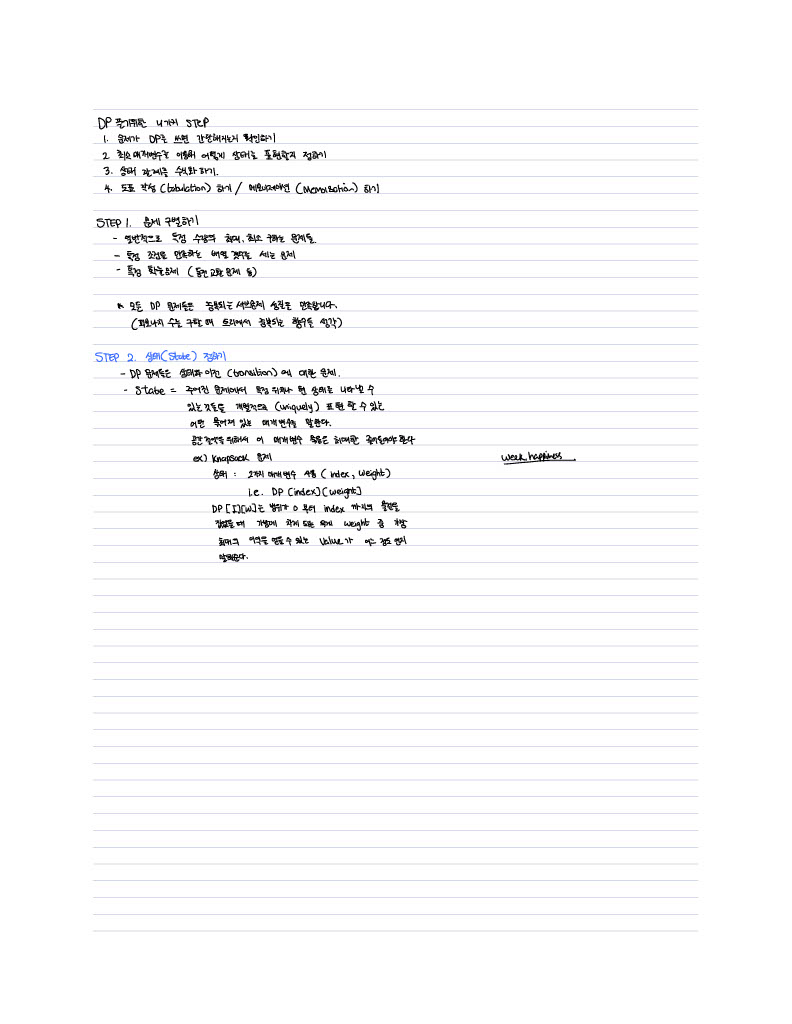 DP 풀기위한 4가지 STEP
1. 문제가 DP로 쓰면 간단해지는지 확인하기
2. 최소 매개변수를 이용해 어떻게 상태를 표현할지 정하기
3. 상태 관계를 수식화 하기.
4. 도표 작성 (tabulation) 하기 / 메모이제이션 (Memoisation) 하기
STEP 1. 문제 구별하기
- 일반적으로 특정 수량의 최대, 최소 구하는 문제들
- 특정 조건을 만족하는 배열 갯수를 세는 문제
- 특정 확률문제 (동전 교환 문제 등)
* 모든 DP 문제들은 중복되는 서브문제 성질을 만족합니다.
(피보나치 수를 구할 때 트리에서 중복되는 함수들 생각)
STEP 2. 상태(State) 정하기
- DP 문제들은 상태와 이전 (transition)에 대한 문제.
- State = 주어진 문제에서 특정 위치나 현 상태를 나타낼 수
있는 것들을 개별적으로 (uniquely) 표현 할 수 있는
어떤 묶여져 있는 매개변수를 말한다.
공간 절약을 위해서 이 매개변수 묶음은 최대한 줄여들어야 한다
ex) Knapsack 문제
week happiness
상태 : 2가지 매개변수 사용 (index, weight)
i.e. DP [index][weight]
DP [I][W]는 범위가 0 부터 index 까지의 물건을
집었을 때 가방에 차게 되는 무게 weight 중 가장
최대의 이익을 얻을 수 있는 value가 어느 정도 인지
말해준다.